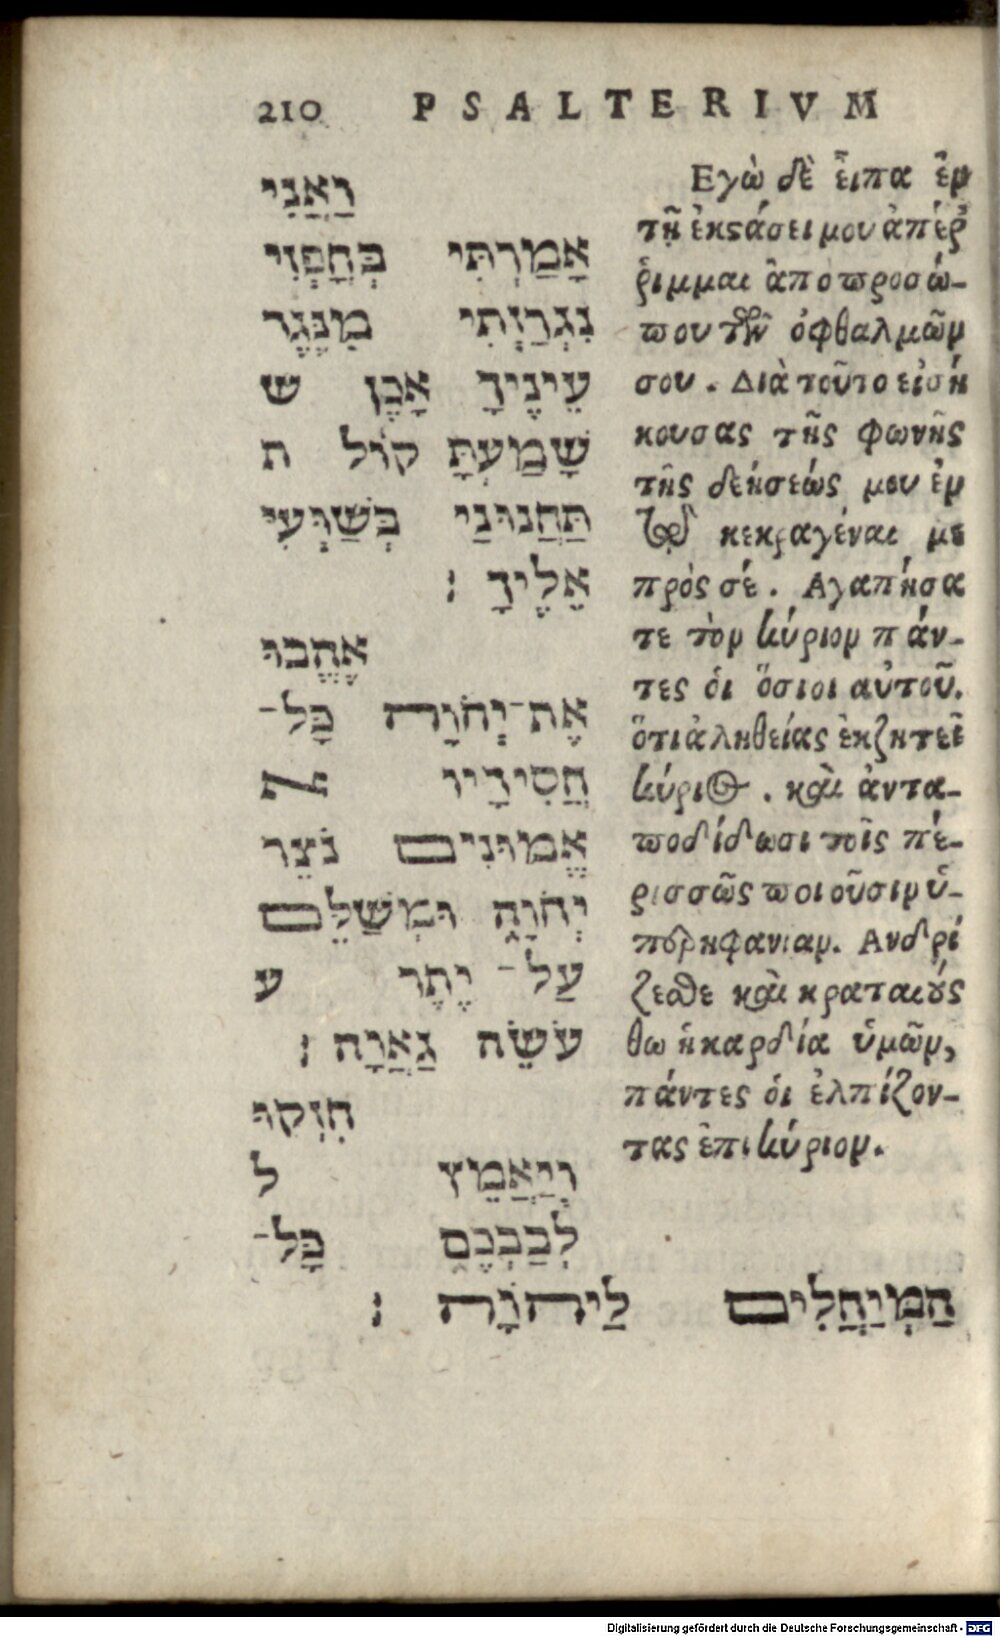 210 PSALTERIVM
וַאֲנִי
אָמַרְתִּי בְּחָפְזִי
נִגְרַזְתִּי מִנֶּגֶר
עֵינֶיךָ אָכֵן ש
שָׁמַעְתָּ קוֹל ת
תַּחֲנוּנַי בְּשַׁוְּעִי
אֵלֶיךָ :
אֶהֱבוּ
אֶת־יְהֹוָה כָּל־
חֲסִידָיו א
אֱמוּנִים נֹצֵר
יְהֹוָה וּמְשַׁלֵּם
עַל־ יֶתֶר ע
עֹשֵׂה גַאֲוָה :
חִזְקוּ
וְיַאֲמֵץ ל
לְבַבְכֶם כָּל־
הַמְיַחֲלִים לַיהוָֹה :
Εγὼ δὲ εἶπα ἐν
τῇ ἐκϛάσει μου ἀπέῤ
ῥιμμαι ἂπο προσώ-
που τῶν ὀφθαλμῶν
σου. Διὰ τοῦτο εἰσή
κουσας τῆς φωνῆς
τῆς δεήσεώς μου ἐν
τῷ κεκραγέναι με
πρὸς σέ. Αγαπήσα
τε τὸν κύριον πάν-
τες ὁι ὅσιοι αὐτοῦ.
ὅτι ἀληθείας ἐκζητεῖ
κύριος. καὶ ἀντα-
ποδίδωσι τοῖς πέ-
ρισσῶς ποιοῦσιν ὑ-
περηφανιαν. Ανδρί
ζεσθε καὶ κραταιούς
θω ἡ καρδία ὑμῶν,
πάντες ὁι ἐλπίζον-
τας ἐπι κύριον.
Digitalisierung gefördert durch die Deutsche Forschungsgemeinschaft - DFG